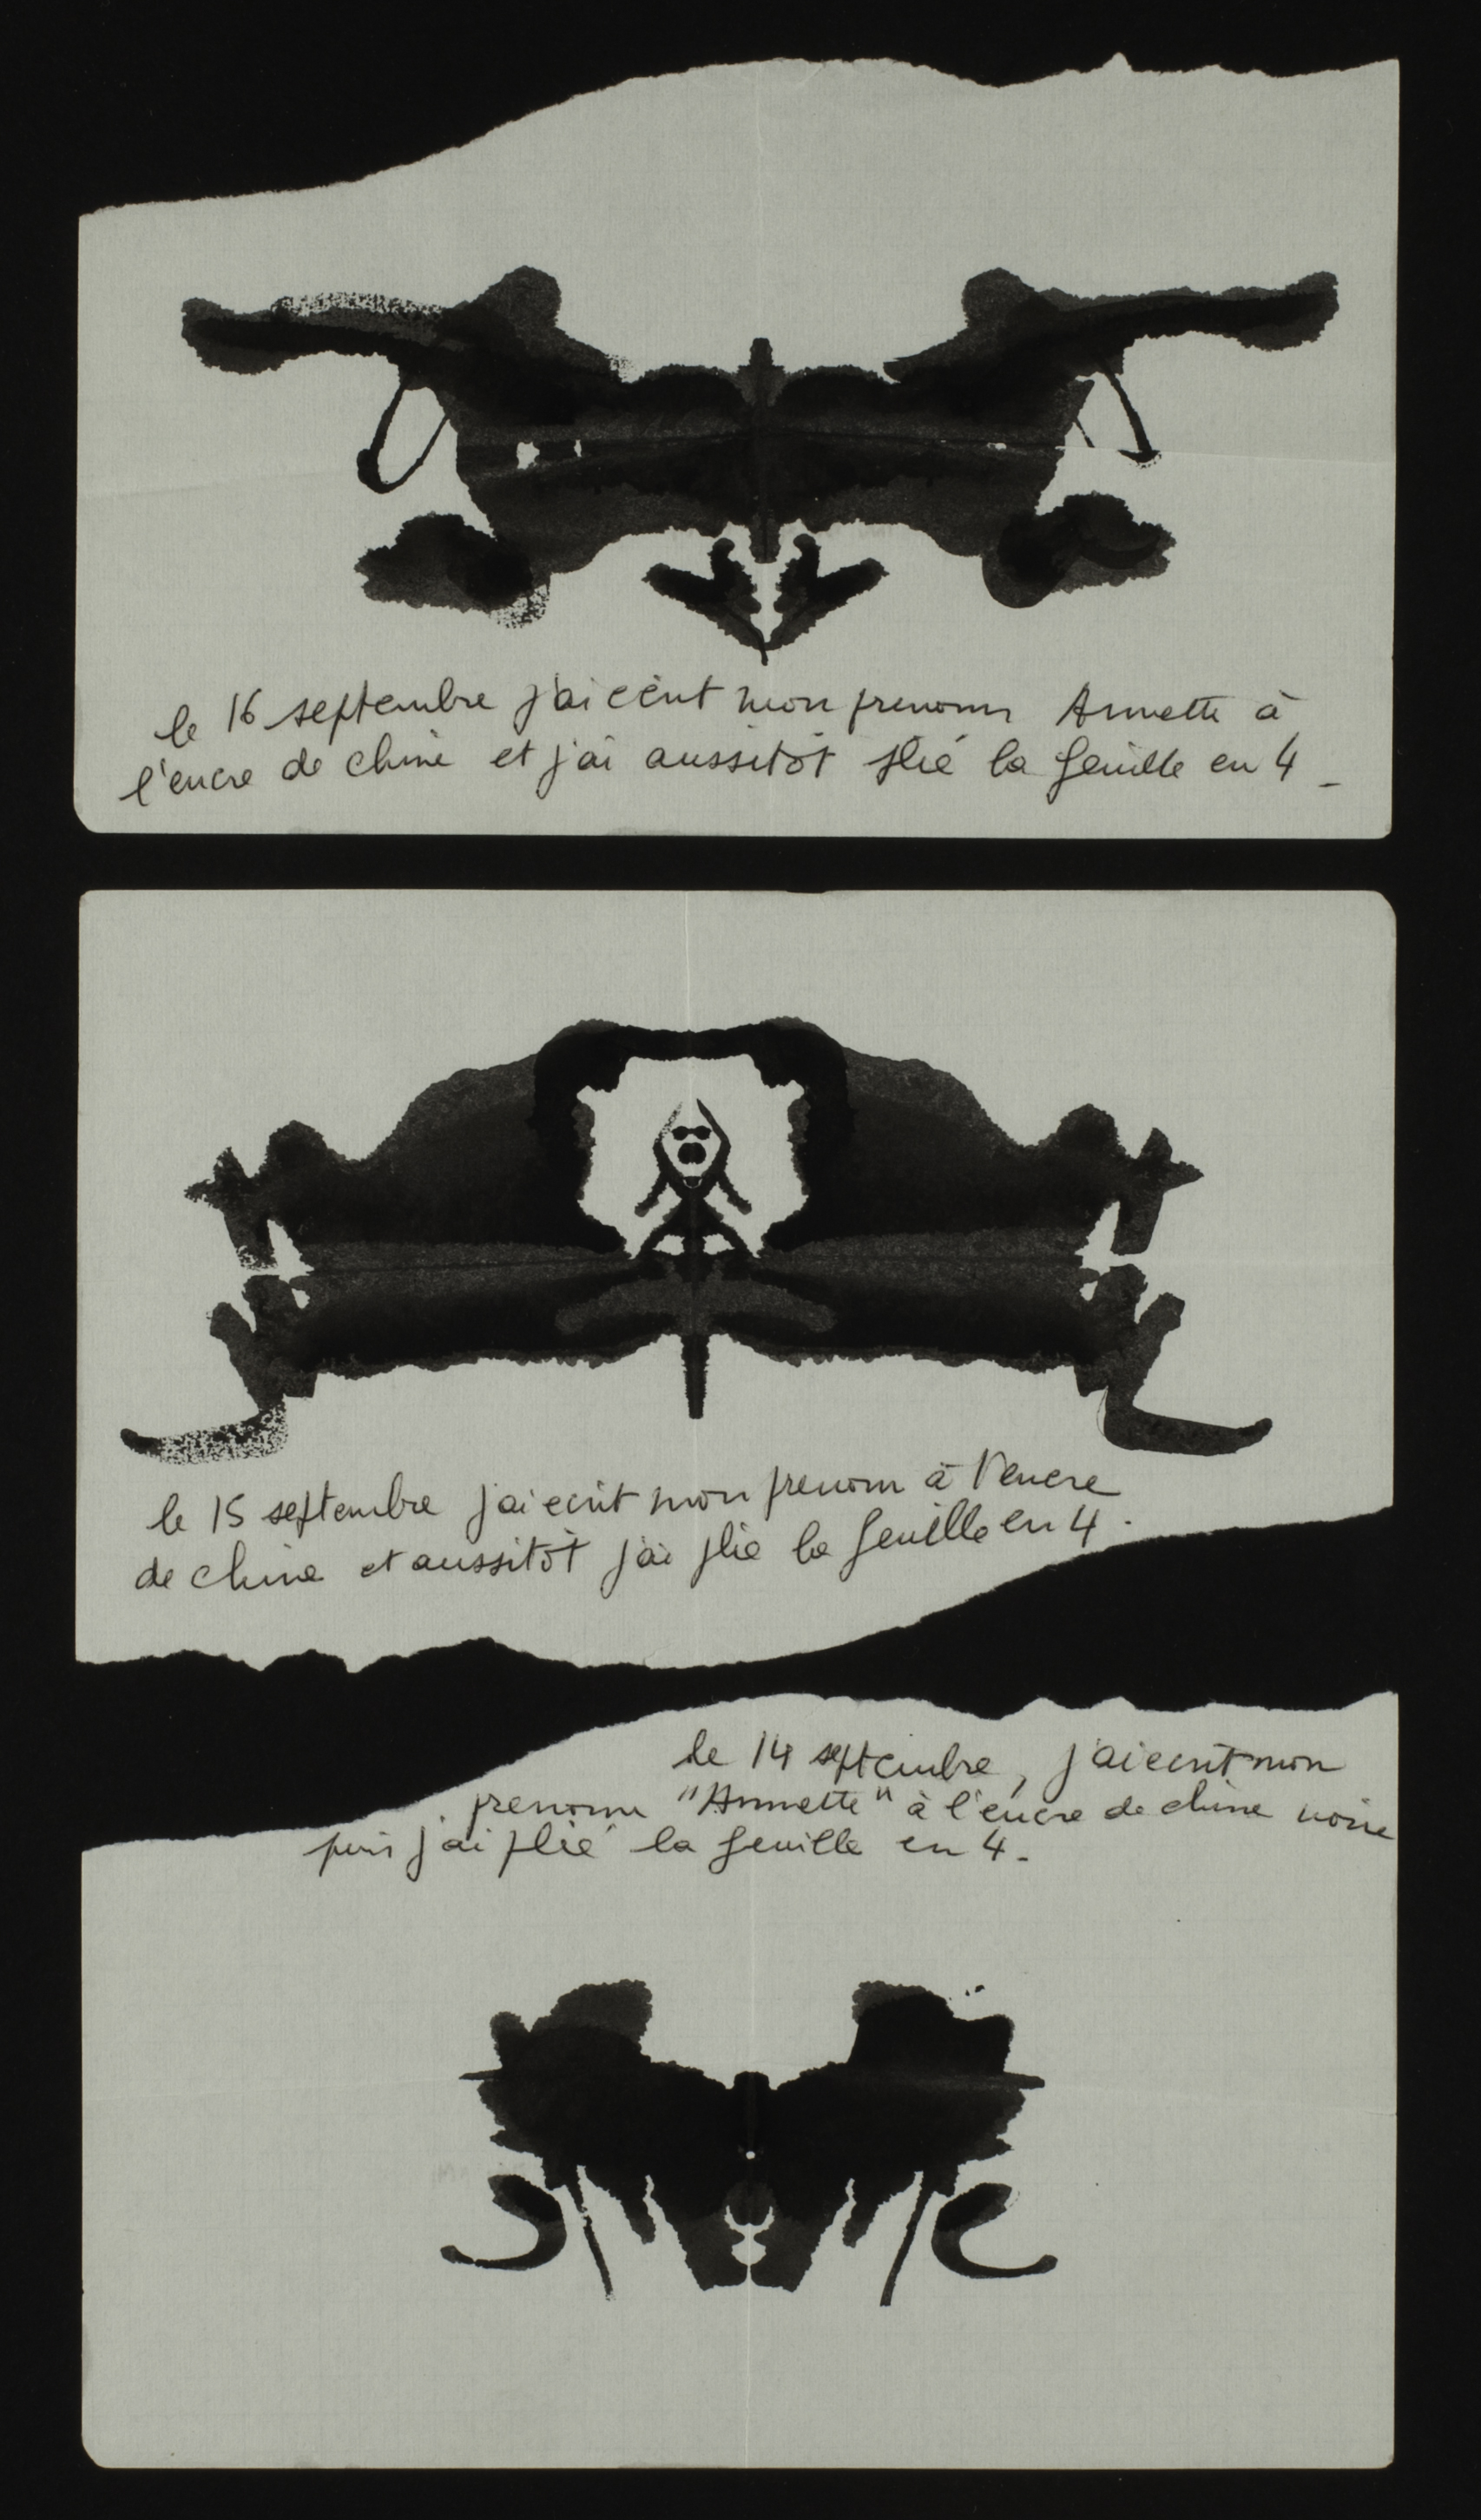 le 16 septembre j'ai écrit mon prenom Annette à
l'encre de chine et j'ai aussitôt plié la feuille en 4 _
le 15 septembre j'ai ecrit mon prenom à l'encre
de chine et aussitôt j'ai plié la feuille en 4.
le 14 septembre, j'ai ecrit mon
prenom "Annette" à l'encre de chine noire
puis j'ai plié la feuille en 4.